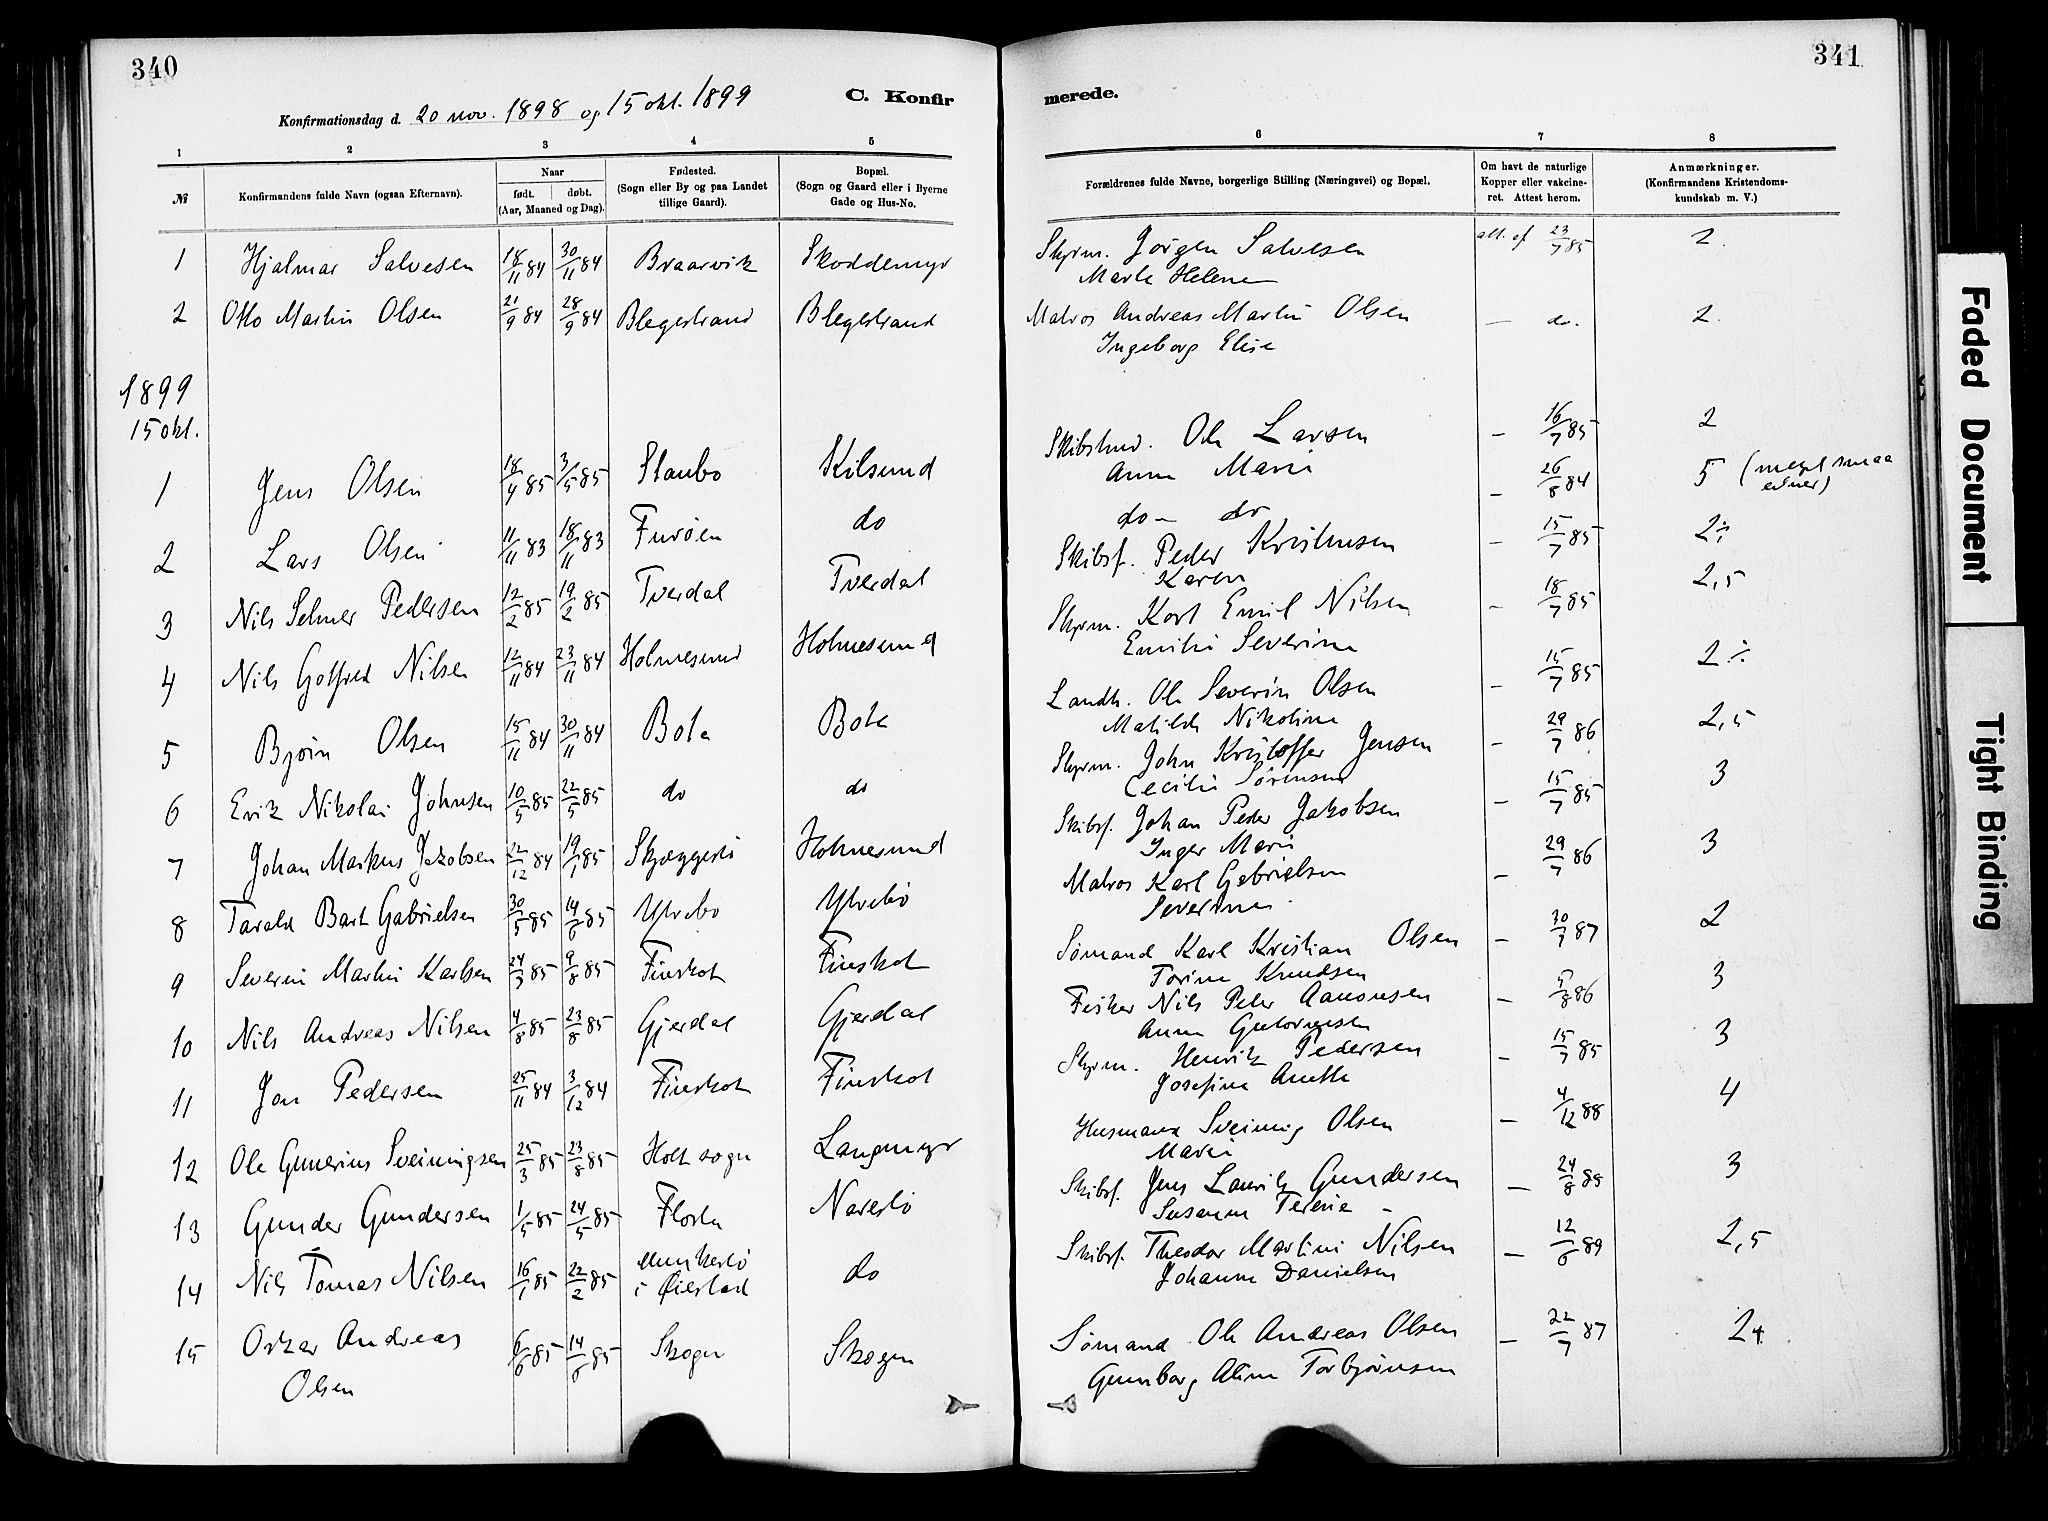 340
Konfirmationsdag d. 20 nov. 1898 og 15 okt. 1899
C. Konfir
1 2 3 4 5
№ Konfirmandens fulde Navn (ogsaa Efternavn).
Naar
født. døbt.
(Aar, Maaned og Dag).
Fødested.
(Sogn eller By og paa Landet
tillige Gaard).
Bopæl.
(Sogn og Gaard eller i Byerne
Gade og Hus-No.
1 Hjalmar Salvesen 18/11 84 30/11 84 Braarvik Skoddemyr
2 Otto Martin Olsen 21/9 84 28/9 84 Blegestrand Blegestrand
1899
15 okt.
1 Jens Olsen 18/4 85 3/5 85 Staubo Kilsund
2 Lars Olsen 11/11 83 18/11 83 Furøen do
3 Nils Selmer Pedersen 12/2 85 19/2 85 Tverdal Tverdal
4 Nils Gotfred Nilsen 12/11 84 23/11 84 Holmesund Holmesund
5 Bjørn Olsen 15/11 84 30/11 84 Bota Bota
6 Erik Nikolai Johnsen 10/5 85 22/5 85 do do
7 Johan Markus Jakobsen 22/12 84 19/1 85 Skjæggestø Holmesund
8 Tarald Bart Gabrielsen 30/5 85 14/6 85 Ytrebø Ytrebø
9 Severin Martin Karlsen 24/3 85 9/8 85 Finskot Finskot
10 Nils Andreas Nilsen 4/8 85 23/8 85 Gjerdal Gjerdal
11 Jon Pedersen 25/11 84 3/12 84 Finskot Finskot
12 Ole Gunerius Sveinungsen 25/3 85 23/8 85 Holt sogn Langmyr
13 Gunder Gundersen 1/5 85 24/5 85 Flosta Narestø
14 Nils Tomas Nilsen 16/1 85 22/2 85 i Øiestad do
15 Oskar Andreas 6/6 85 14/6 85 Skogen Skogen
Olsen
341
merede.
6 7 8
Forældrenes fulde Navne, borgerlige Stilling (Næringsvei) og Bopæl.
Om havt de naturlige
Kopper eller vakcine-
ret. Attest herom.
Anmærkninger.
(Konfirmandens Kristendoms-
kundskab m. V.)
Skprm. Jørgen Salvesen att. af 23/7 85 2.
Marte Helene
Matros Andreas Martin Olsen — do. 2.
Ingeborg Elise
Skibstmd. Ole Larsen – 16/7 85 2
Anne Marie
do – do – 26/8 84 5 (meget smaa
evner)
Skibsf. Peder Kristensen – 15/7 85 2÷
Karen
Skprm. Karl Emil Nilsen – 18/7 85 2,5
Emilie Severine
Landh. Ole Severin Olsen – 15/7 85 2÷
Matilde Nikoline
Skprm. John Kristoffer Jensen – 29/7 86 2,5
Cecilie Sørensen
Skibsf. Johan Peder Jakobsen – 15/7 85 3
Inger Marie
Matros Karl Gabrielsen – 29/7 86 3
Severine
Sømand Karl Kristian Olsen – 30/7 87 2
Torine Knudsen
Fisker Nils Peter Aanonsen – 5/8 86 3
Anne Guttormsen
Skprm. Henrik Pedersen – 15/7 85 3
Josefine Anette
Husmand Sveinung Olsen – 4/12 88 4
Marie
Skibsf. Jens Lauritz Gundersen – 24/8 89 3
Susanne Terese
Skibsf. Theodor Martini Nilsen – 12/6 89 2,5
Johanne Danielsen
Sømand Ole Andreas Olsen – 22/7 87 2+
Gunborg Aline Torbjørnsen
Faded Document
Tight Binding